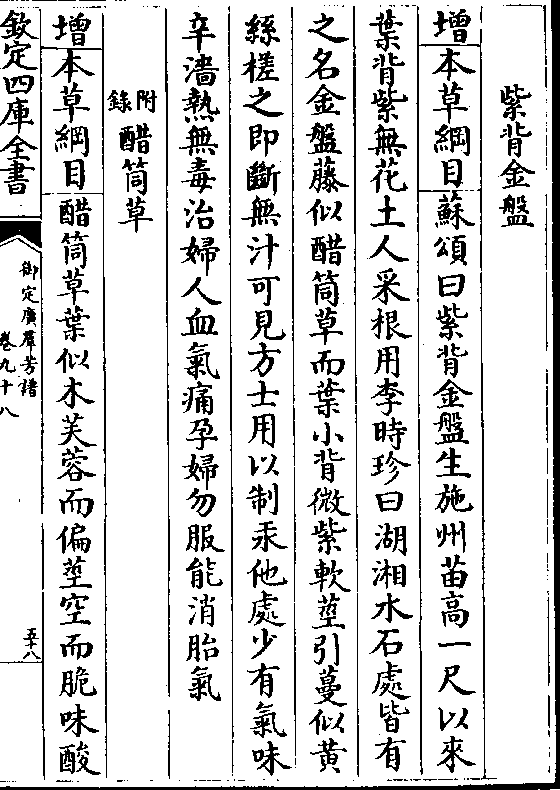 紫背金盤
增本草綱目蘇頌曰紫背金盤生施州苗高一尺以來
葉背紫無花土人采根用李時珍曰湖湘水石處皆有
之名金盤藤似醋筒草而葉小背微紫軟莖引蔓似黃
絲搓之即斷無汁可見方士用以制汞他處少有氣味
辛濇熱無毒治婦人血氣痛孕婦勿服能消胎氣
附錄醋筒草
增本草綱目醋筒草葉似木芙蓉而偏莖空而脆味酸
欽定四庫全書
御定廣羣芳譜
卷九十八
五十八